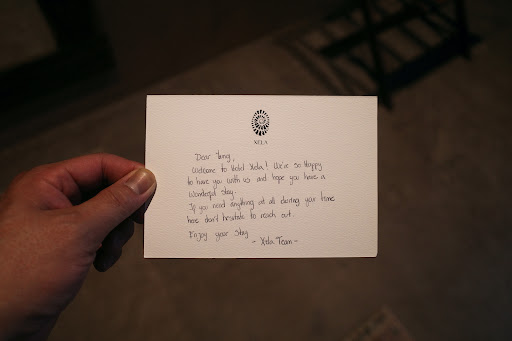 XELA
Dear Yung,
Welcome to Hotel Xela! We're so Happy
to have you with us and hope you have a
wonderful stay.
If you need anything at all during your time
here don't hesitate to reach out.
Enjoy your stay
- Xela Team -